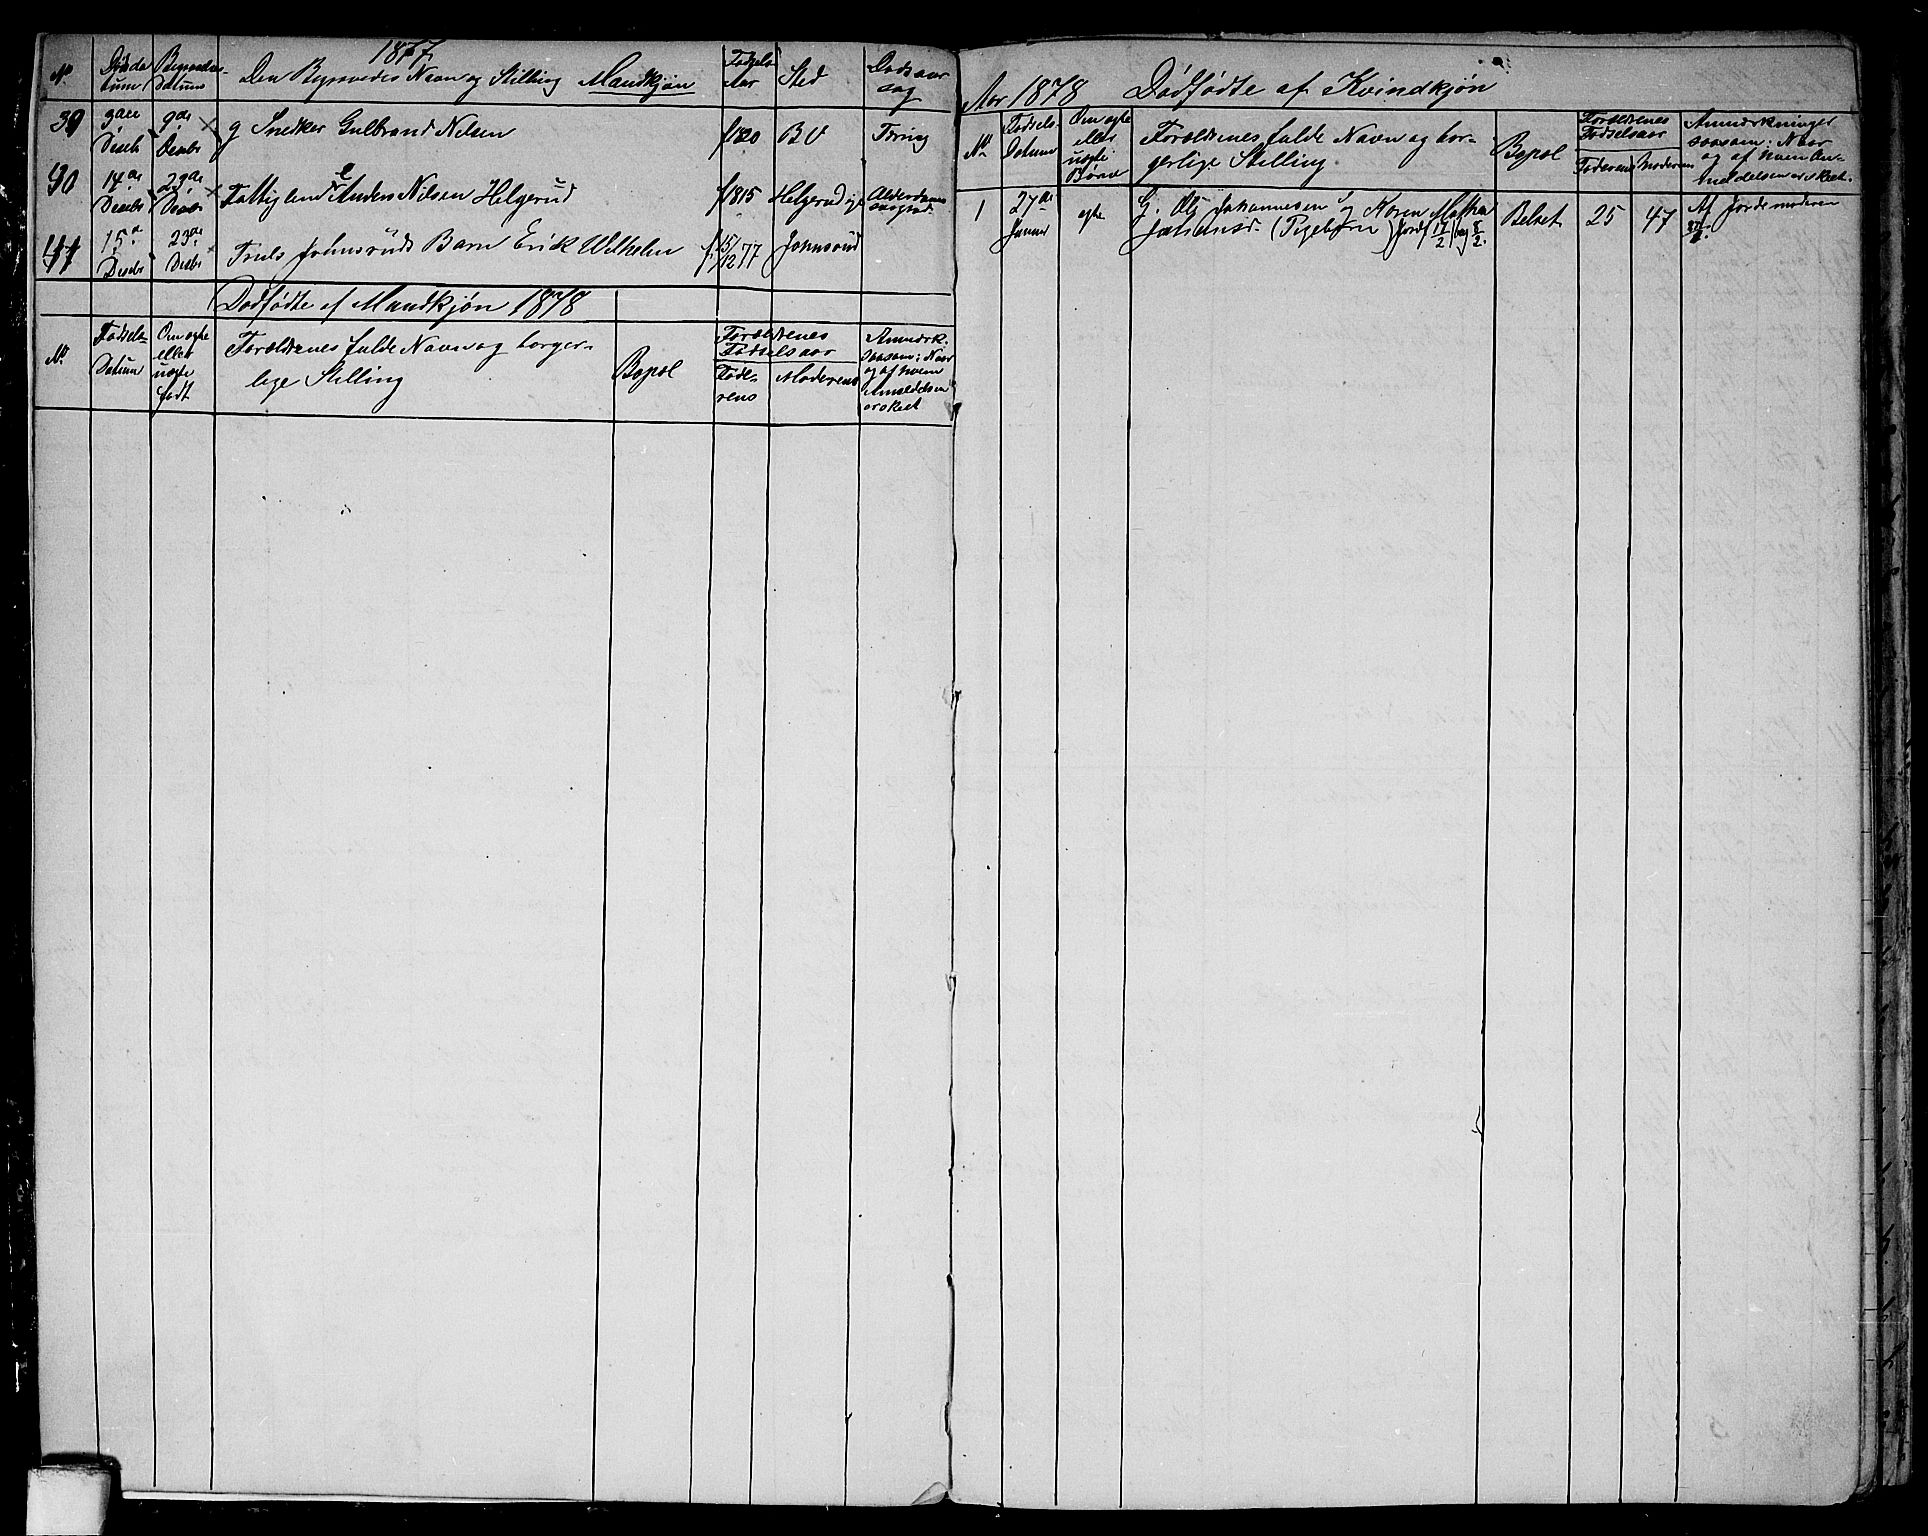 1877.
No Døds Datum Begravelses Datum Den Begravedes Navn og Stilling Mandkjøn Fødsels Aar Sted Dødsaarsag
39 3die Decbr 9de Decbr g Snedker Gulbrand Nilsen f 1820 BV Tæring
40 14de Decbr 23de Decbr Fattiglem E Anders Nilsen Helgerud f 1815 Helgerud eje Alderdoms
41 15de Decbr 23de Decbr Truls Johnsruds Barn Erik Wilhelm f 15/12 77 Johnsrud
Dødfødte af Mandkjøn 1878
No Fødsels-Datum Om ægte eller uægte født Forældrenes fulde Navn og borgerlige Stilling Bopæl Forældrenes Fødselsaar Faderens Moderens Anmærk. saasom: Naar og af hvem Anmeldelsen er skeet
Aar 1878 Dødfødte af Kvindkjøn
No Fødsels-Datum Om ægte eller uægte Børn Forældrenes fulde Navn og borgerlige Stilling Bopæl Forældrenes Fødselsaar Faderens Moderens Anmærkninger saasom: Naar og af hvem Anmeldelsen er skeet.
1 27de Januar ægte G. Ole Johannesen og Karen Mathea (Pigebarn) Jord 25 47 Af Jordemoderen